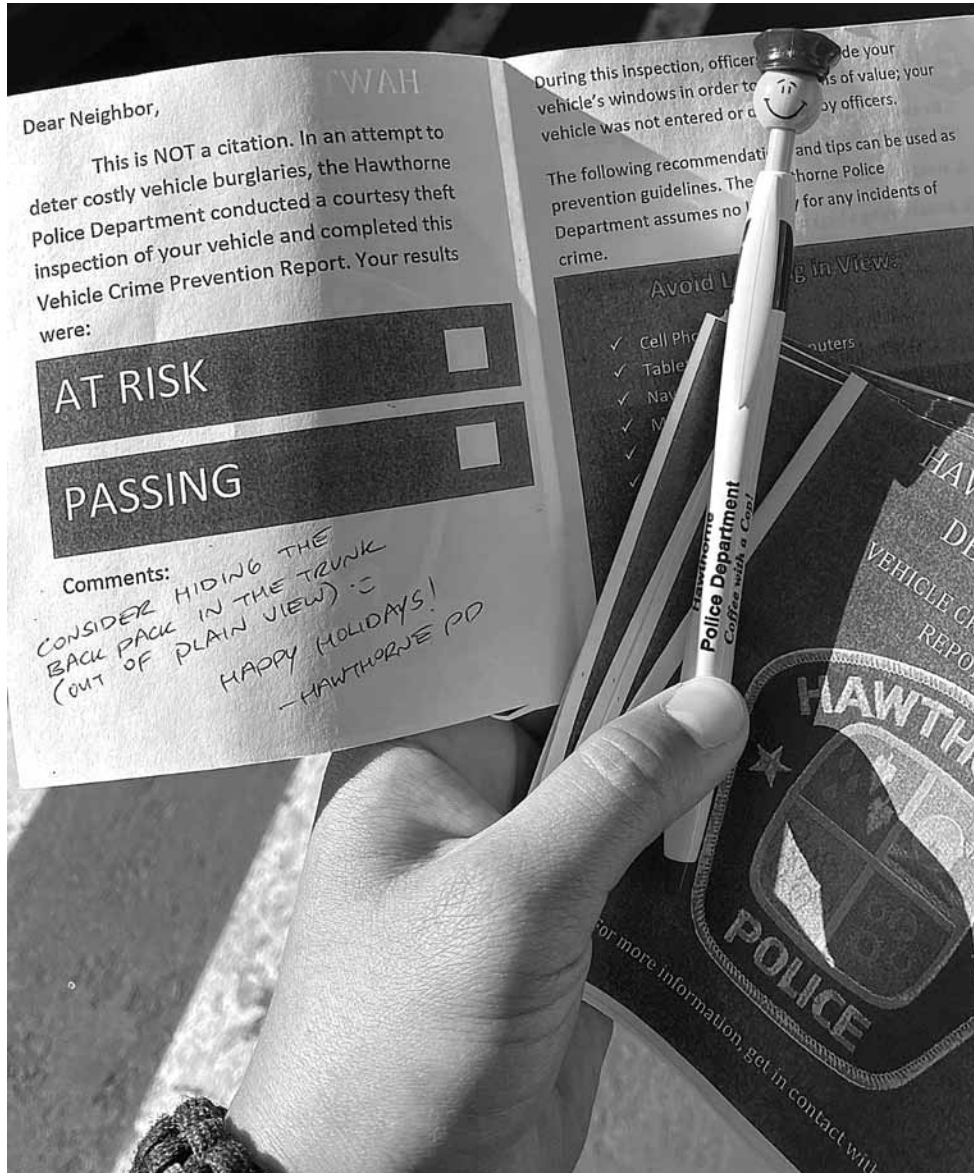 Dear Neighbor,
This is NOT a citation. In an attempt to
deter costly vehicle burglaries, the Hawthorne
Police Department conducted a courtesy theft
inspection of your vehicle and completed this
Vehicle Crime Prevention Report. Your results
were:
AT RISK
PASSING
Comments:
CONSIDER HIDING THE
BACK PACK IN THE TRUNK
(OUT OF PLAIN VIEW) :=
HAPPY HOLIDAYS!
- HAWTHORNE PD
During this inspection, officer de your
vehicle's windows in order to s of value; your
vehicle was not entered or by officers.
The following recommendati and tips can be used as
prevention guidelines. The thorne Police
Department assumes no for any incidents of
crime.
Avoid L g in View:
✓ Cell Pho puters
✓ Table
✓ Nav
✓ M
✓
✓
Hawthorne
Police Department
Coffee with a Cop!
HAW
D
VEHICLE C
REPO
HAWTH
POLICE
For more information, get in contact with